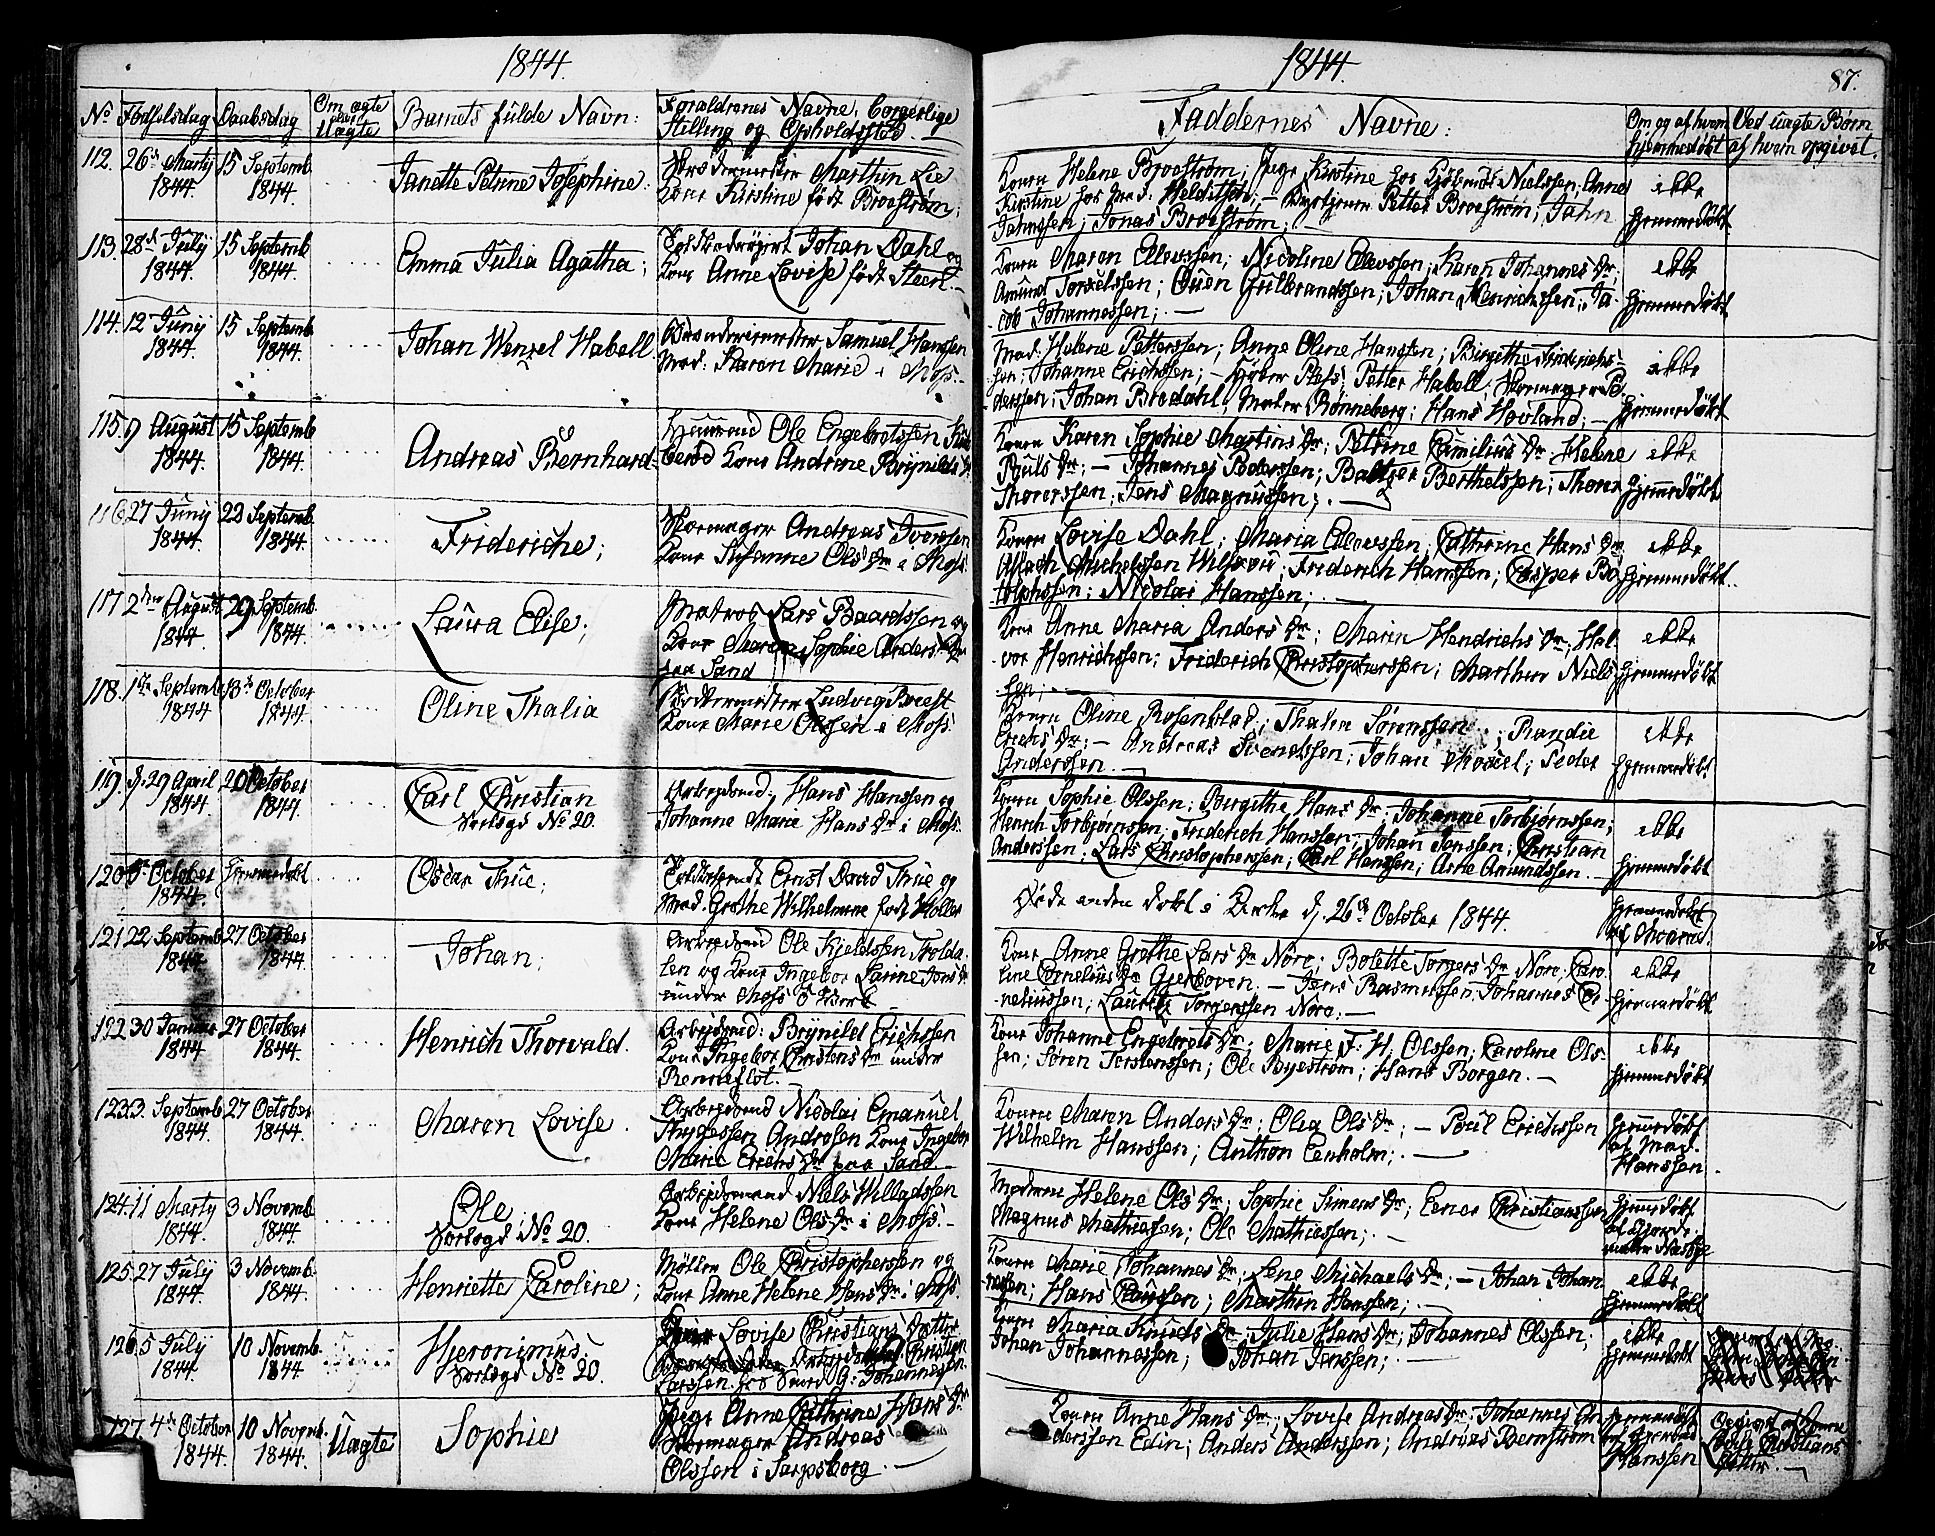 1844.
No Fødselsdag Daabsdag Om ægte eller Uægte Barnets fulde Navn: Forældrenes Navne, borgerlige Stilling og Opholdssted.
112. 26de Martij 1844. 15 Septemb 1844. Janette Petrine Josephine: Marthin Lie
Kone Kirstine født Broestrøm;
113. 28de Julij 1844. 15 Septemb 1844. Emma Julia Agatha; Johan Dahl og
Kone Anne Lovise født Steen.
114. 12 Junij 1844. 15 Septemb 1844. Johan Wenzel Habell. Samuel Hanssen
Mad: Karen Marie i Moss.
115. 9 August 1844. 15 Septemb 1844. Andreas Bernhard. Huusmand Ole Engebretssen
Kone Andrine Brynilds Dr
116. 27 Junij 1844. 22 Septemb 1844. Frideriche; Skomager Andreas Iverssen
Kone Susanne Ols Dr i Moss.
117. 2den August 1844. 29 Septemb. 1844. Laura Elise; Matros Lars Baardssen og
Kone Maren Sophie Anders Dr
paa Sand
118. 1ste Septemb 1844 13de October 1844. Oline Thalia Ludvig Brest
Kone Marie Olssen i Moss.
119. d. 29 April 1844. 20 October 1844. Carl Christian
Sorlagd No 20. Arbejdsmd: Hans Hanssen og
Johanne Marie Hans Dr i Moss.
120. October 1844. Hjemmedøbt Oscar Thue; Toldbetjendt Ernst David Thue og
Mad. Grethe Wilhelmine født Holler
121. 22 Septemb 1844. 27 October 1844. Johan; Arbejdsmd Ole Kjeldssen Trolda-
len og Kone Ingebor Larine Jons Dr
under Moss
122. 30 Januar 1844. 27 October 1844. Henrich Thorvald. Arbejdsmd: Brynild Erichssen
Kone Ingebor Christens Dr under
Renneflot.
123. 3. Septemb 1844. 27 October 1844. Maren Lovise. Arbejdsmd Nicolai Emanuel
Thygessen Androsen Kone Ingebor
Marie Erichs Dr paa Sand
124. 11 Marty 1844. 3 Novemb. 1844. Ole;
No 20. Arbejdsmand Niels Willadssen
Kone Helene Ols Dr i Moss.
125. 27 Julij 1844. 3 Novemb. 1844. Henriette Caroline; Møller Ole Christopherssen og
Kone Anne Helene Hans Dr i Moss.
126. 5 Julij 1844. 10 Novemb. 1844. Hjeronimus;
No 20. Lovise Christians Datter
Christian
Larssen Johannessen.
127. 4de October 1844. 10 Novemb. 1844. Uægte Sophie Pige Anne Cathrine Hans Dr
Skomager Andreas
Olssen i Sarpsborg.
1844.
87.
Faddernes Navne: Om og af hvem hjemmedøbt Ved uægte Børn af hvem opgivet.
Konen Helene Broestrøm; Pige Kirstine hos Kjøbmd: Nielssen; Anne
Kirstine hos Petter Broestrøm; Jahn
Jahnssen; Jonas Broestrøm; ikke hjemmedøbt
Konen Maren Ellevssen; Nicoline Ellevssen; Karen Johannes Dr;
Amund Torkelssen; Ouen Gulbrandssen; Johan Henrichssen; Ja-
cob Johannessen; ikke hjemmedøbt
Mad. Helene Petterssen; Anne Oline Hanssen; Birgithe Friderichs-
sen; Johanne Erichssen; Petter Habell; Skomager Pe-
derssen; Johan Bredahl, Maler Rønneberg; Hans Hovland; ikke hjemmedøbt
Konen Karen Sophie Martins Dr; Petrine Camilius Dr Helene
Pauls Dr; Johannes Pederssen; Baltzer Berthelssen; Thorer
Thorerssen; Jens Magnussen; ikke hjemmedøbt
Konen Lovise Dahl; Maria Ellevssen; Cathrine Hans Dr
Aslach Michelssen Friderich Hanssen; Casper Ro-
lophssen; Nicolai Hanssen; ikke hjemmedøbt.
Kone Anne Maria Anders Dr; Maren Hendrichs Dr; Hal-
vor Henrichssen; Friderich Christopherssen; Marthin Niels-
sen; ikke hjemmedøbt
Konen Oline Rosenblad; Thalia Sørenssen; Randie
Erichs Dr; Andreas Svendssen; Johan Peder
Anderssen. ikke hjemmedøbt
Konen Sophie Olssen; Birgithe Hans Dr; Johanne Torbjørnssen;
Henrich Torbjørnssen; Friderich Hanssen; Johan Jenssen; Christian
Anderssen; Lars Christopherssen; Carl Hanssen; Arne Amundssen. ikke hjemmedøbt
Døde uden døbt i Kirke d. 26de October 1844. hjemmedøbt
Kone Anne Grethe Lars Dr Nore; Bolette Torgers Dr Nore; Caro-
line Cornelius Dr Jens Rasmussen; Johannes Cor-
neliussen; Laurits Torgerssen Nore; ikke hjemmedøbt
Kone Johanne Engebrets Dr; Marie F. H. Olssen; Caroline Ols-
sen; Søren Torstenssen; Ole Byestrøm; Hans Borgen. ikke hjemmedøbt
Konen Maren Anders Dr; Olia Ols Dr; Poul Erichssen
Wilhelm Hanssen; Anthon Eenholm; hjemmedøbt af Mad. Hanssen.
Moderen Helene Ols Dr; Sophie Simens Dr; Einer Christianssen
Magnus Mathiassen; Ole Mathiessen; hjemmedøbt
Konen Marie Johannes Dr; Lene Michaels Dr; Johan Johan-
nessen; Hans Claussen; Marthin Hanssen; ikke hjemmedøbt
Konen Maria Knuds Dr; Julie Hans Dr; Johannes Olssen;
Johan Johannessen; Johan Jenssen; ikke hjemmedøbt
Konen Anne Hans Dr; Lovise Andreas Dr; Johannes An-
derssen Edin; Anders Anderssen; Andreas Bernstrøm hjemmedøbt Hanssen Opgivet af Lovise Christians Datter.